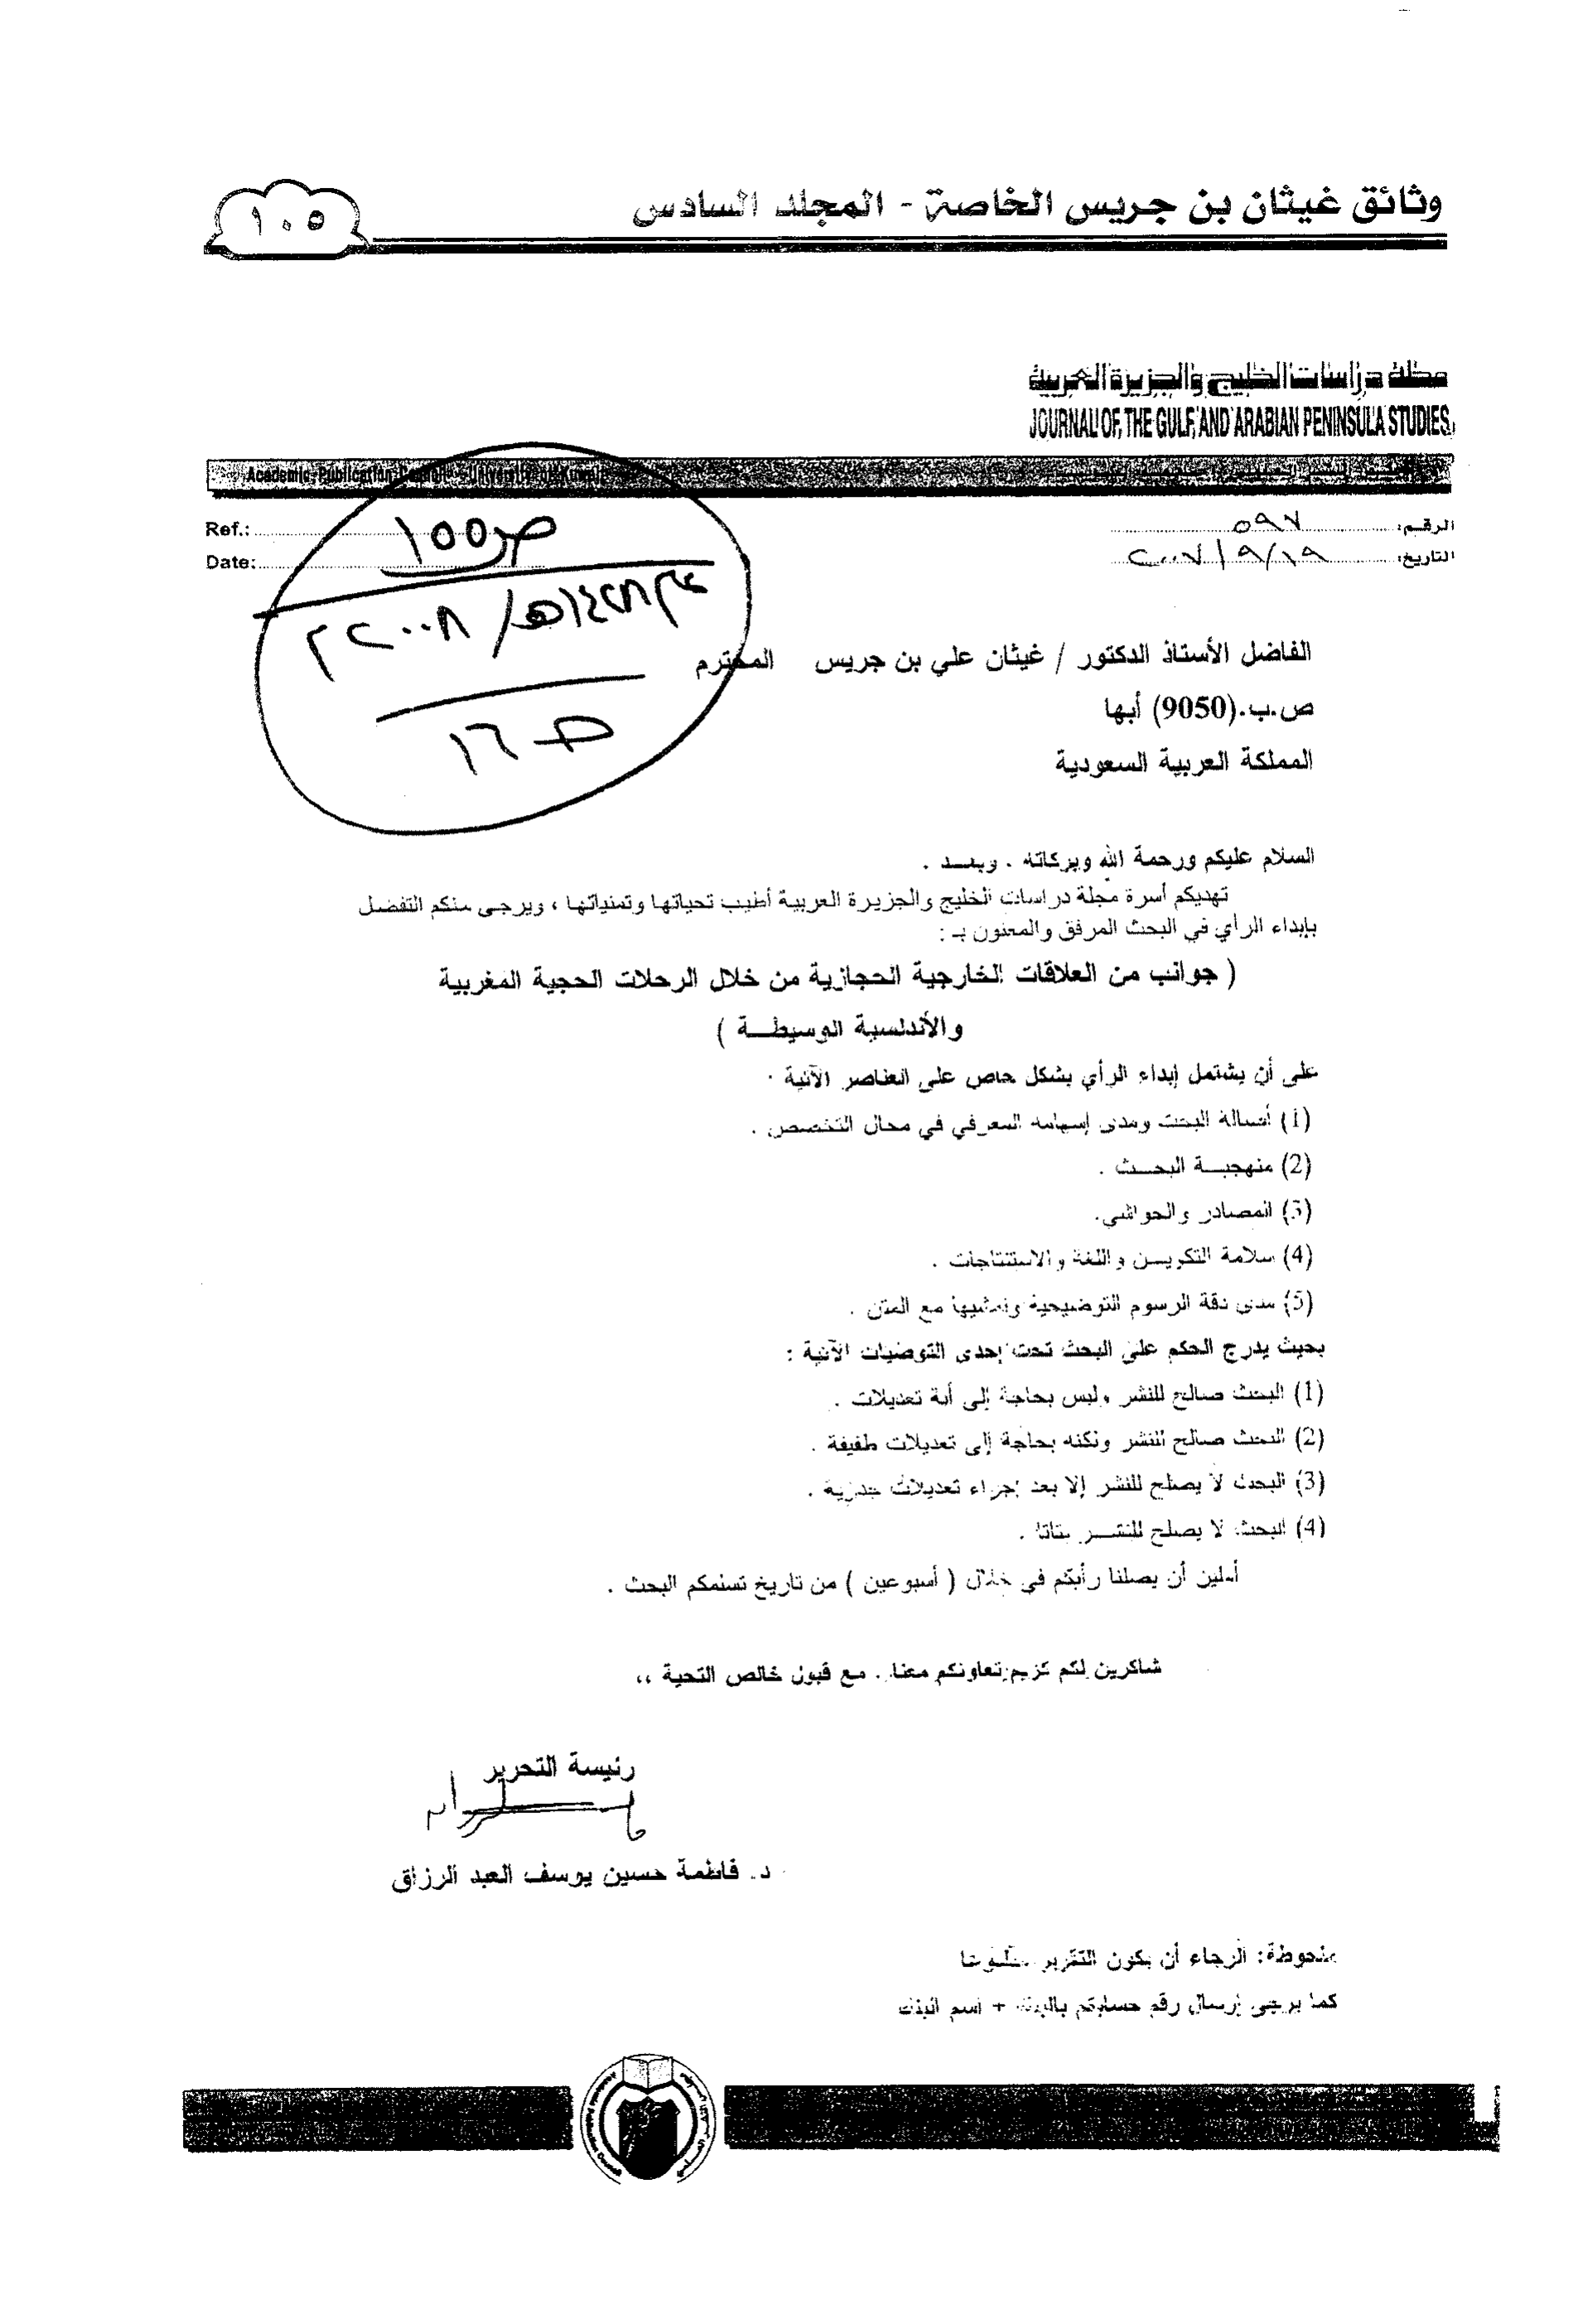 وثائق غيثان بن جريس الخاصة - المجلد السادس
١٠٥
مجلة دراسات الخليج والجزيرة العربية
JOURNAL OF THE GULF AND ARABIAN PENINSULA STUDIES
Academic Publication Council - University of Kuwait
الرقم: ٥٩٧
التاريخ: ١٩/٩/٢٠٠٧
Ref.:
Date:
ص١٥٥
١٤٢٨هـ/ ٢٠٠٨م
ص١٦
الفاضل الأستاذ الدكتور / غيثان علي بن جريس المحترم
ص.ب.(9050) أبها
المملكة العربية السعودية
السلام عليكم ورحمة الله وبركاته . وبعد .
تهديكم أسرة مجلة دراسات الخليج والجزيرة العربية أطيب تحياتها وتمنياتها ، ويرجى منكم التفضل
بإبداء الرأي في البحث المرفق والمعنون بـ :
( جوانب من العلاقات الخارجية الحجازية من خلال الرحلات الحجية المغربية
والأندلسية الوسيطة )
على أن يشتمل إبداء الرأي بشكل خاص على العناصر الآتية :
(1) أصالة البحث ومدى إسهامه المعرفي في مجال التخصص .
(2) منهجية البحث .
(3) المصادر والحواشي.
(4) سلامة التكوين واللغة والاستنتاجات .
(5) مدى دقة الرسوم التوضيحية وتمشيها مع المتن .
بحيث يدرج الحكم على البحث تحت إحدى التوصيات الآتية :
(1) البحث صالح للنشر وليس بحاجة إلى أية تعديلات .
(2) البحث صالح للنشر ولكنه بحاجة إلى تعديلات طفيفة .
(3) البحث لا يصلح للنشر إلا بعد إجراء تعديلات جذرية .
(4) البحث لا يصلح للنشر بتاتا .
آملين أن يصلنا رأيكم في خلال ( أسبوعين ) من تاريخ تسلمكم البحث .
شاكرين لكم كريم تعاونكم معنا . مع قبول خالص التحية ،،
رئيسة التحرير
د. فاطمة حسين يوسف العبد الرزاق
ملحوظة: الرجاء أن يكون التقرير مطبوعا
كما يرجى إرسال رقم حسابكم بالبنك + اسم البنك